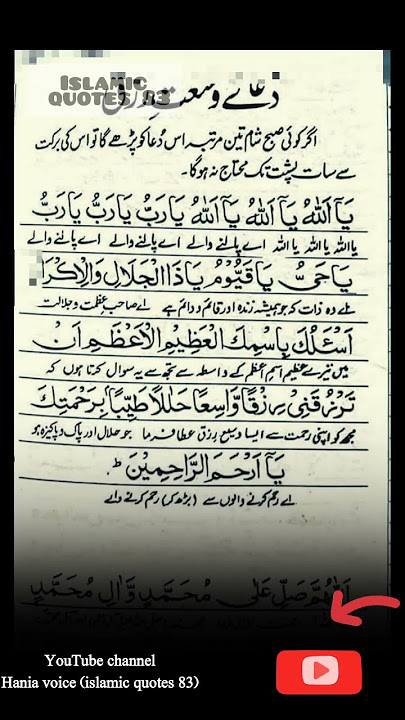 ISLAMIC
QUOTES 83
دعائے وسعت رزق
اگر کوئی صبح شام تین مرتبہ اس دُعا کو پڑھے گا تو اس کی برکت
سے سات پشت تک محتاج نہ ہوگا۔
يَآ اَللّٰهُ يَآ اَللّٰهُ يَآ اَللّٰهُ يَارَبُّ يَارَبُّ يَارَبُّ
یا اللہ یا اللہ یا اللہ اے پالنے والے اے پالنے والے اے پالنے والے
يَاحَىُّ يَاقَيُّوْمُ يَاذَا الْجَلَالِ وَالْاِكْرَا
اے وہ ذات کہ جو ہمیشہ زندہ اور قائم و دائم ہے اے صاحب عظمت و جلالت
اَسْئَلُكَ بِاسْمِكَ الْعَظِيْمِ الْاَعْظَمِ اَنْ
میں تیرے عظیم اسم اعظم کے واسطہ سے تجھ سے یہ سوال کرتا ہوں کہ
تَرْزُقَنِىْ رِزْقًا وَّاسِعًا حَلَالًا طَيِّبًا بِرَحْمَتِكَ
مجھ کو اپنی رحمت سے ایسا وسیع رزق عطا فرما جو حلال اور پاک و پاکیزہ ہو
يَآ اَرْحَمَ الرَّاحِمِيْنَ ط
اے رحم کرنے والوں سے (بڑھ کر) رحم کرنے والے
اَللّٰهُمَّ صَلِّ عَلٰى مُحَمَّدٍ وَّاٰلِ مُحَمَّدٍ
YouTube channel
Hania voice (islamic quotes 83)